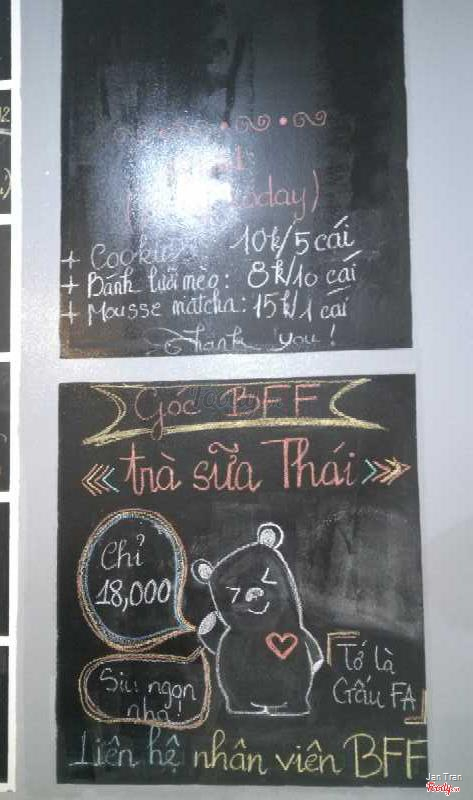 today)
+ Cookies 10k/5 cái
+ Bánh lưỡi mèo: 8k/10 cái
+ Mousse matcha: 15k/1 cái
Thank you!
Góc BFF
trà sữa Thái
Chỉ
18,000
Siu ngon
nha!
Tớ là
Gấu FA
Liên hệ nhân viên BFF
Jen Tran
Foody.vn